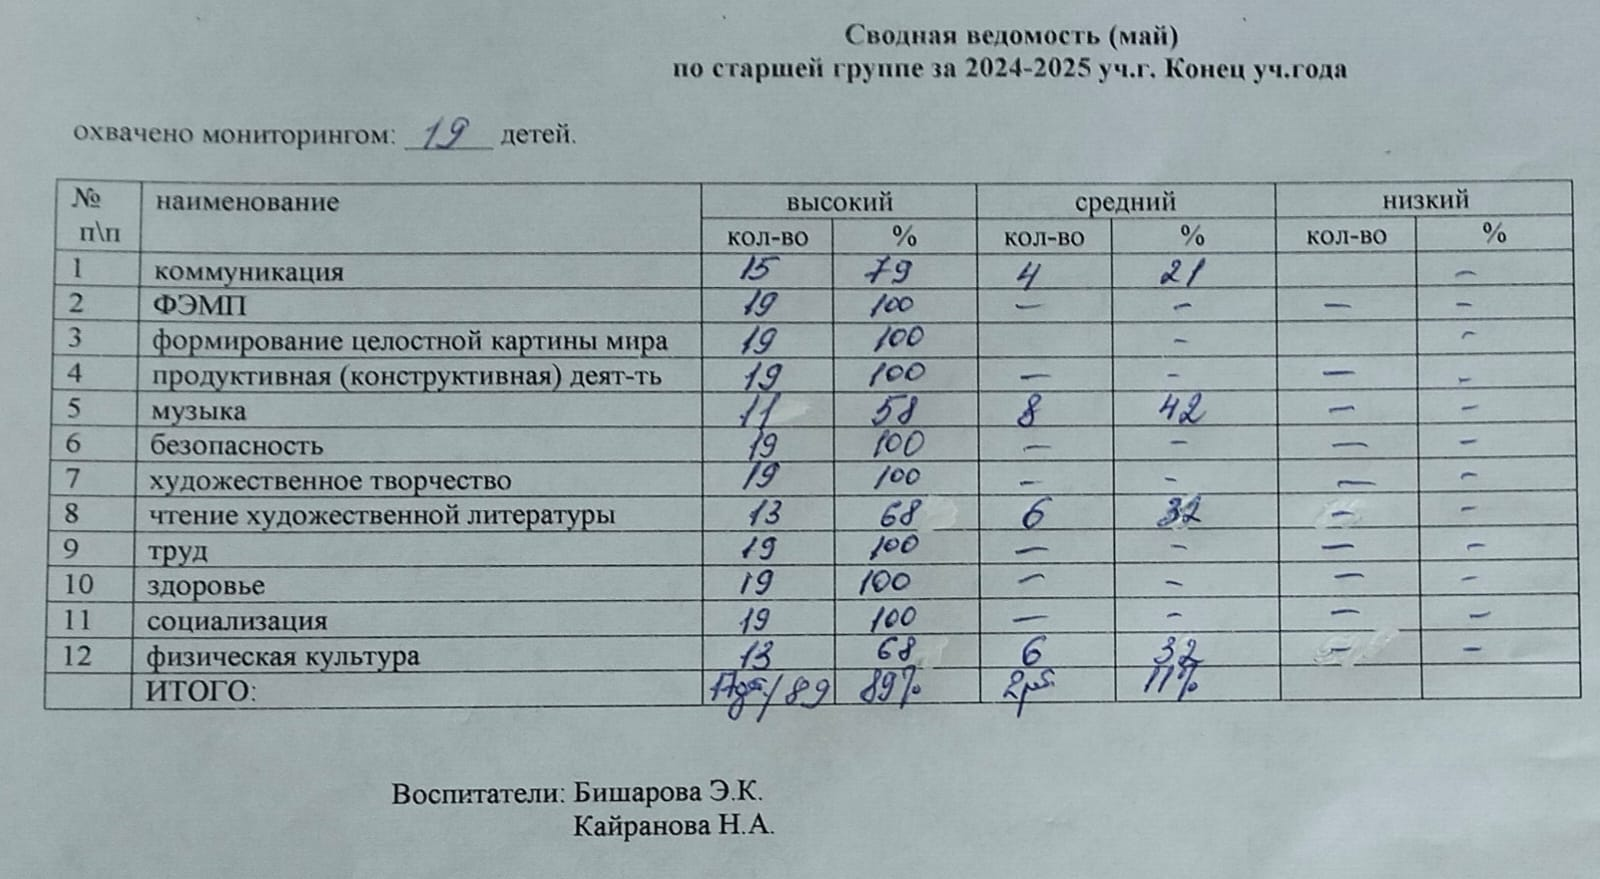 Сводная ведомость (май)
по старшей группе за 2024-2025 уч.г. Конец уч.года
охвачено мониторингом: 19 детей.
№ п\п наименование высокий средний низкий
кол-во % кол-во % кол-во %
1 коммуникация 15 79 4 21 –
2 ФЭМП 19 100 – – – –
3 формирование целостной картины мира 19 100 – –
4 продуктивная (конструктивная) деят-ть 19 100 – – – –
5 музыка 11 58 8 42 – –
6 безопасность 19 100 – – – –
7 художественное творчество 19 100 – – – –
8 чтение художественной литературы 13 68 6 32 – –
9 труд 19 100 – – – –
10 здоровье 19 100 – – – –
11 социализация 19 100 – – – –
12 физическая культура 13 68 6 32 – –
ИТОГО: / 89 89% 11%
Воспитатели: Бишарова Э.К.
Кайранова Н.А.